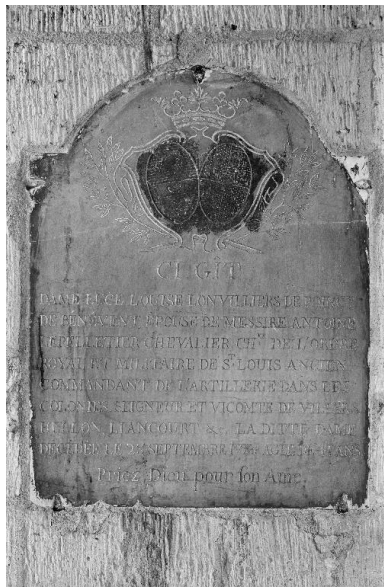 CI GIT
DAME LUCE LOUISE LONVILLIERS DE
DE BENOUVENT EPOUSE DE MESSIRE ANTOINE
LEPELLETIER CHEVALIER CH.ER DE L'ORDRE
ROYAL ET MILITAIRE DE S.T LOUIS ANCIEN
COMMANDANT DE L'ARTILLERIE DANS LES
COLONIES SEIGNEUR ET VICOMTE DE
LIANCOURT &. LA DITTE DAME
DECEDEE LE SEPTEMBRE AGEE DE ANS
Priez Dieu pour son Ame.